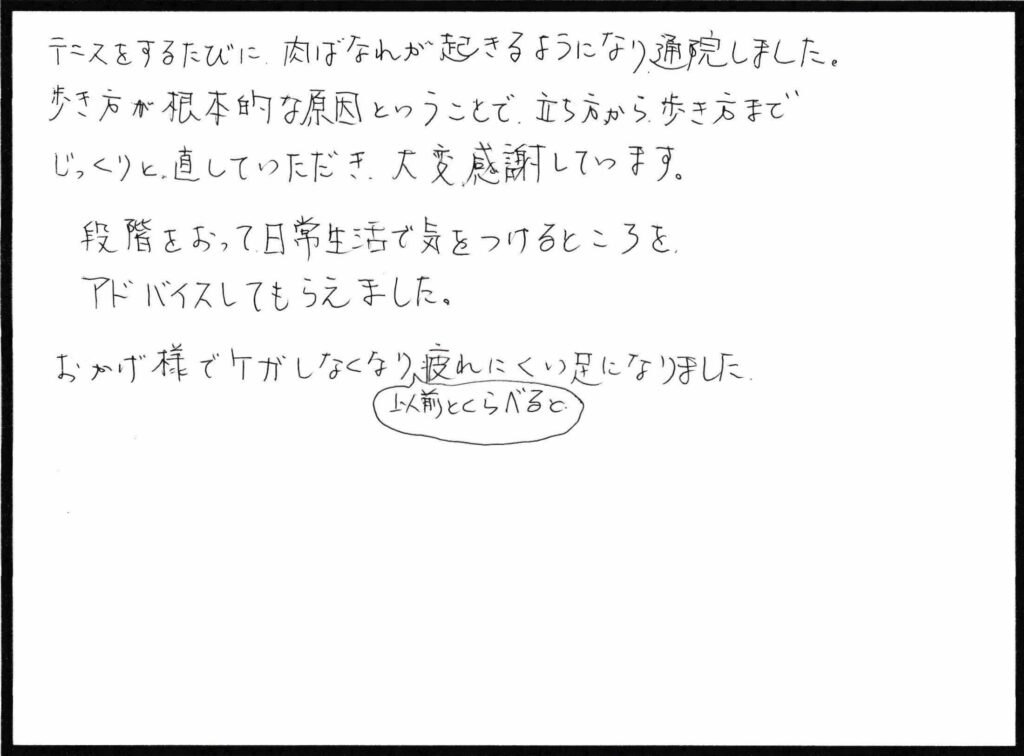 テニスをするたびに、肉ばなれが起きるようになり、通院しました。
歩き方が根本的な原因ということで、立ち方から、歩き方まで
じっくりと、直していただき、大変、感謝しています。
段階をおって、日常生活で気をつけるところを、
アドバイスしてもらえました。
おかげ様でケガしなくなり、疲れにくい足になりました。
以前とくらべると、